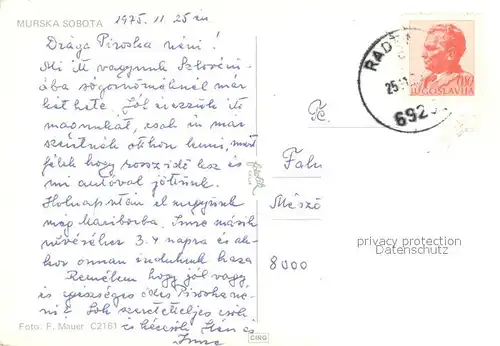 MURSKA SOBOTA
1975. 11. 25 én
Drága Piroska néni!
Mi itt vagyunk Szlovéni-
ába sógornőméknél már
két hete. Jól érezzük itt
magunkat, csak én már
szeretnék otthon lenni, mert
félek hogy rossz idő lesz és
mi autóval jöttünk.
Holnapután el megyünk
még Mariborba. Imre másik
nővéréhez 3-4 napra és ak-
kor onnan indulunk haza
Remélem hogy jól vagy
és egészséges édes Piroska né-
ni! Sok szeretettel csókol
és
Imre
Foto: F. Mauer C2161
CIRG
JUGOSLAVIJA
25.11.
692
Falu
Mészö
8000
privacy protection
Datenschutz